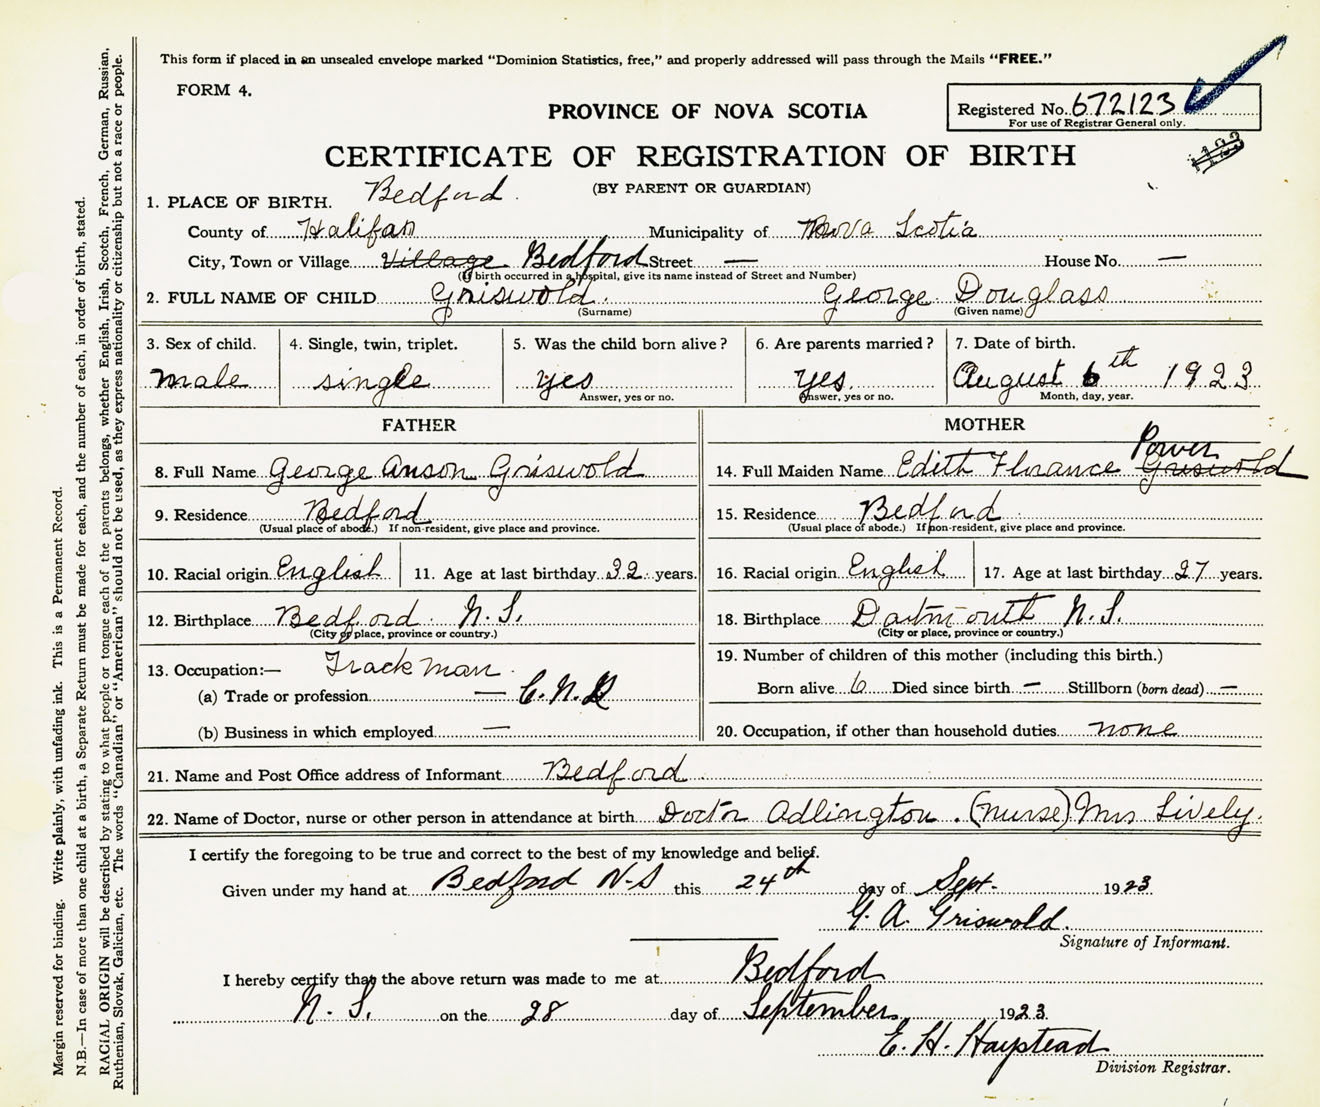 This form if placed in an unsealed envelope marked "Dominion Statistics, free," and properly addressed will pass through the Mails "FREE."
FORM 4.
PROVINCE OF NOVA SCOTIA
Registered No. 672123
For use of Registrar General only.
1123
CERTIFICATE OF REGISTRATION OF BIRTH
(BY PARENT OR GUARDIAN)
1. PLACE OF BIRTH. Bedford
County of Halifax Municipality of Nova Scotia
City, Town or Village Village Bedford Street — House No. —
(If birth occurred in a hospital, give its name instead of Street and Number)
2. FULL NAME OF CHILD Griswold. George Douglass
(Surname) (Given name)
3. Sex of child. 4. Single, twin, triplet. 5. Was the child born alive? 6. Are parents married? 7. Date of birth.
male single yes yes August 6th 1923
Answer, yes or no. Answer, yes or no. Month, day, year.
FATHER
8. Full Name George Anson Griswold
9. Residence Bedford
(Usual place of abode.) If non-resident, give place and province.
10. Racial origin English 11. Age at last birthday 32 years.
12. Birthplace Bedford N.S.
(City or place, province or country.)
13. Occupation:— Trackman
(a) Trade or profession — C.N.R
(b) Business in which employed —
MOTHER
Power
14. Full Maiden Name Edith Florance Griswold
15. Residence Bedford
(Usual place of abode.) If non-resident, give place and province.
16. Racial origin English 17. Age at last birthday 27 years.
18. Birthplace Dartmouth N.S.
(City or place, province or country.)
19. Number of children of this mother (including this birth.)
Born alive 6 Died since birth — Stillborn (born dead) —
20. Occupation, if other than household duties none
21. Name and Post Office address of Informant Bedford
22. Name of Doctor, nurse or other person in attendance at birth Doctor Adlington. (nurse) Mrs Lively.
I certify the foregoing to be true and correct to the best of my knowledge and belief.
Given under my hand at Bedford N-S this 24th day of Sept. 1923
G. A. Griswold.
Signature of Informant.
I hereby certify that the above return was made to me at Bedford
N. S. on the 28 day of September 1923
E. H. Haystead
Division Registrar.
Margin reserved for binding. Write plainly, with unfading ink. This is a Permanent Record.
N.B.—In case of more than one child at a birth, a Separate Return must be made for each, and the number of each, in order of birth, stated.
RACIAL ORIGIN will be described by stating to what people or tongue each of the parents belongs, whether English, Irish, Scotch, French, German, Russian,
Ruthenian, Slovak, Galician, etc. The words "Canadian" or "American" should not be used, as they express nationality or citizenship but not a race or people.